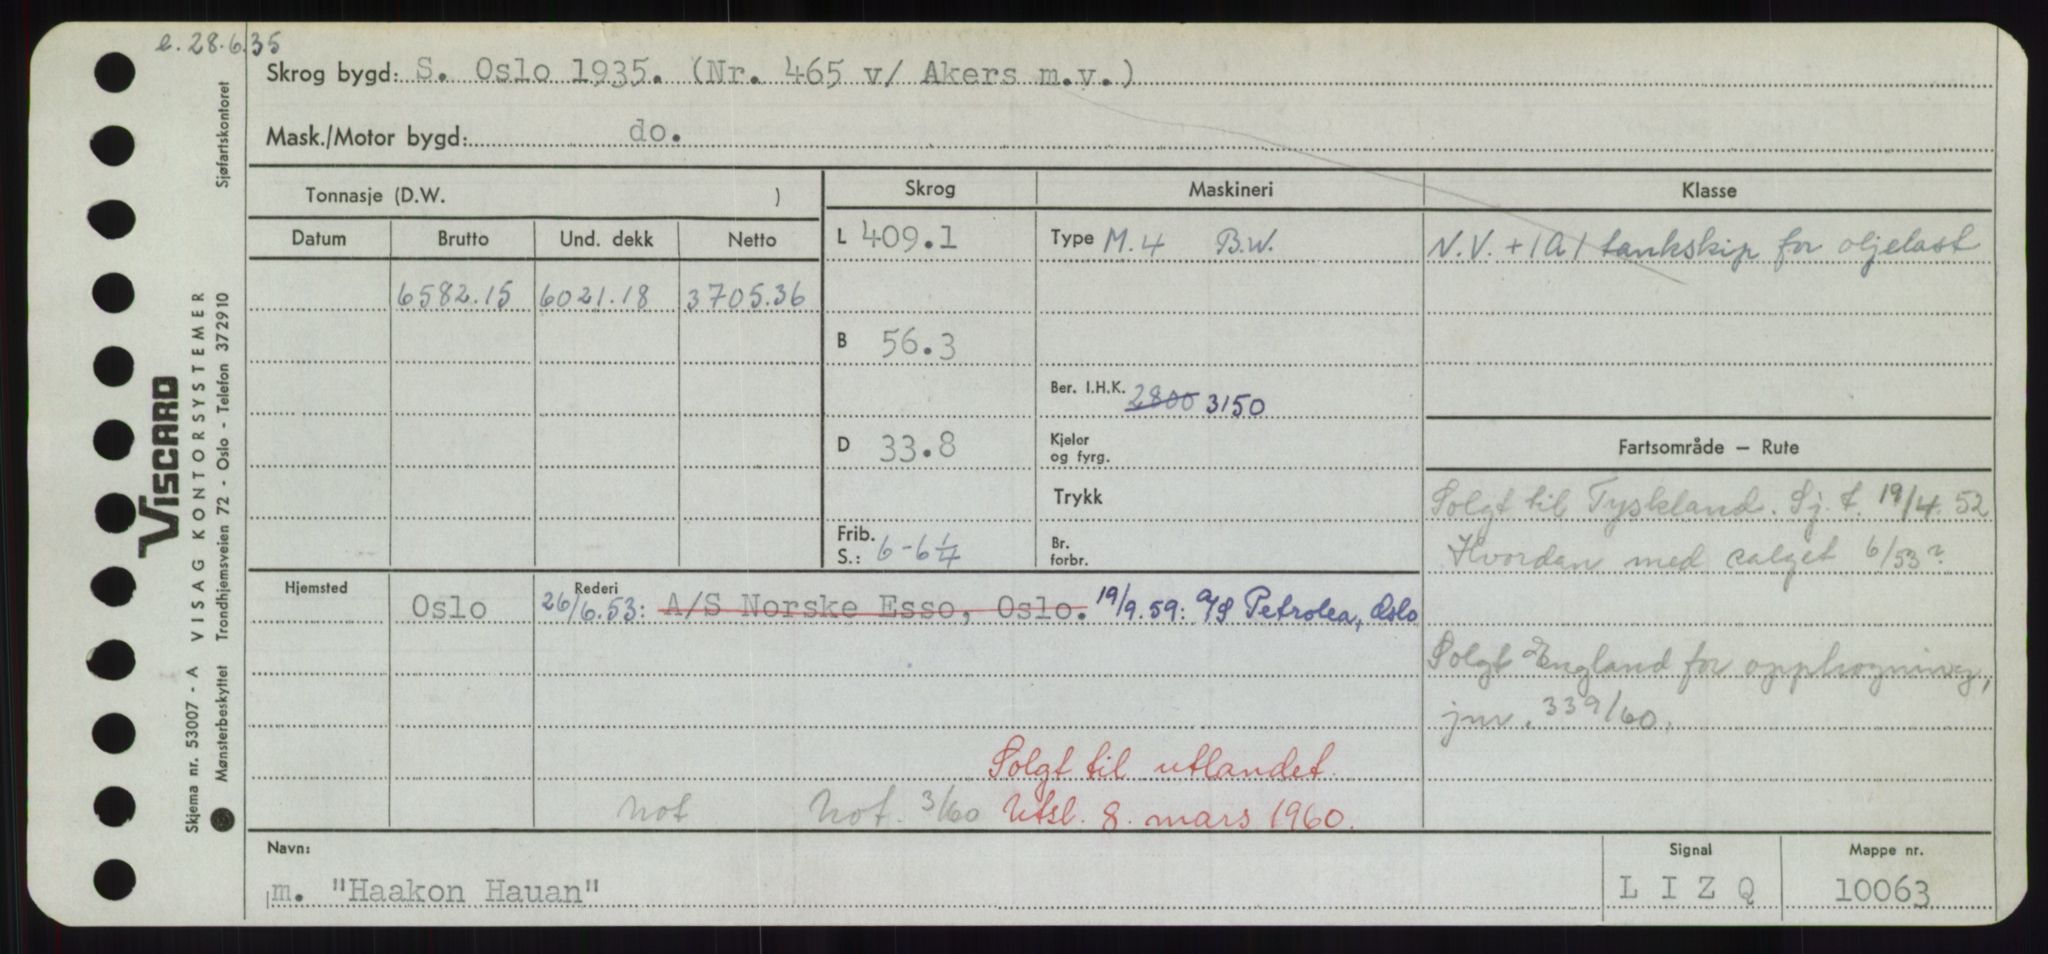 e. 28.6.35
Skrog bygd: S. Oslo 1935. (Nr. 465 v/ Akers m.v.)
Mask./Motor bygd: do.
Tonnasje (D.W. )
Datum Brutto Und. dekk Netto
6582.15 6021.18 3705.36
Skrog
L 409.1
B 56.3
D 33.8
Frib.
S.: 6-6 1/4
Maskineri
Type M. 4 B.W.
Ber. I.H.K. 2800 3150
Kjeler
og fyrg.
Trykk
Br.
forbr.
Klasse
N.V. + 1A1 tankskip for oljelast
Fartsområde – Rute
Solgt til Tyskland. Sj. t. 19/4. 52
Hvordan med salget 6/53?
Solgt England for opphogning,
jnr. 339/60.
Hjemsted Rederi
Oslo 26/6.53: A/S Norske Esso, Oslo. 19/9.59: A/S Petrolea, Oslo
Solgt til utlandet.
Not Not. 3/60 Utsl. 8. mars 1960.
Navn: Signal Mappe nr.
m. "Haakon Hauan" L I Z Q 10063
Sjøfartskontoret
VISCARD
VISAG KONTORSYSTEMER
Trondhjemsveien 72 - Oslo - Telefon 372910
Skjema nr. 53007 - A
Mønsterbeskyttet